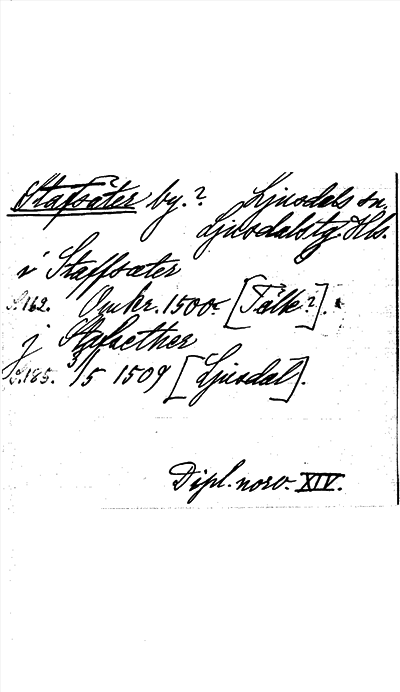 Stafsäter by.? Ljusdals sn,
Ljusdalstg. Hls.
i Staffsæter
S. 162. Omkr. 1500 [Tälk?].
j Stafsether
S. 185. 3/5 1509 [Ljusdal].
Dipl. norv. XIV.